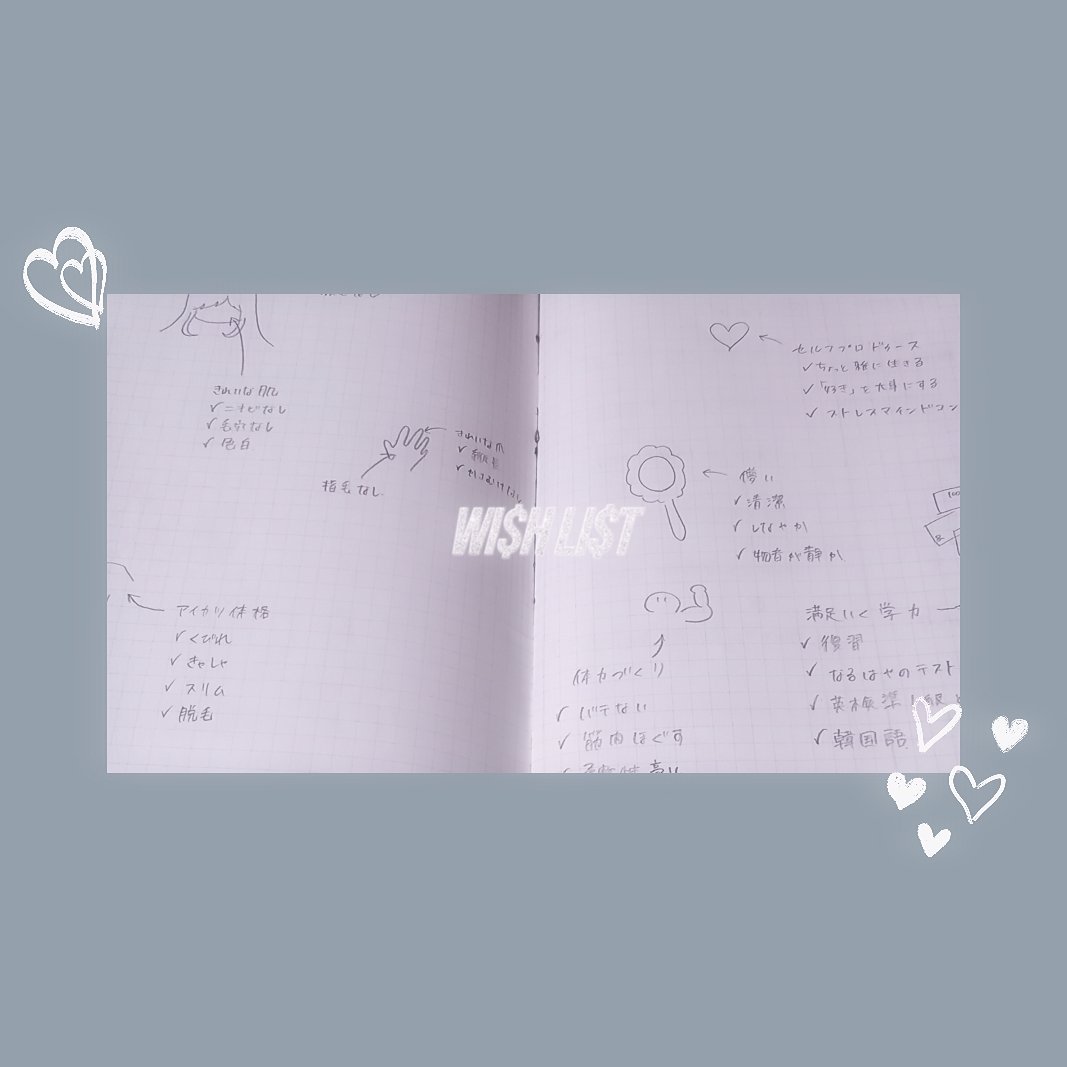 きれいな肌
✓ニキビなし
✓毛穴なし
✓色白
きれいな爪
✓縦長
✓ささむけなし
指毛なし
アイカツ体格
✓くびれ
✓きゃしゃ
✓スリム
✓脱毛
WI$H LI$T
セルフプロデュース
✓ちょっと雑に生きる
✓「好き」を大事にする
✓ストレスマインドコン
儚い
✓清潔
✓しなやか
✓物音が静か
体力づくり
✓バテない
✓筋肉ほぐす
満足いく学力
✓復習
✓なるはやのテスト
✓英検準1級
✓韓国語